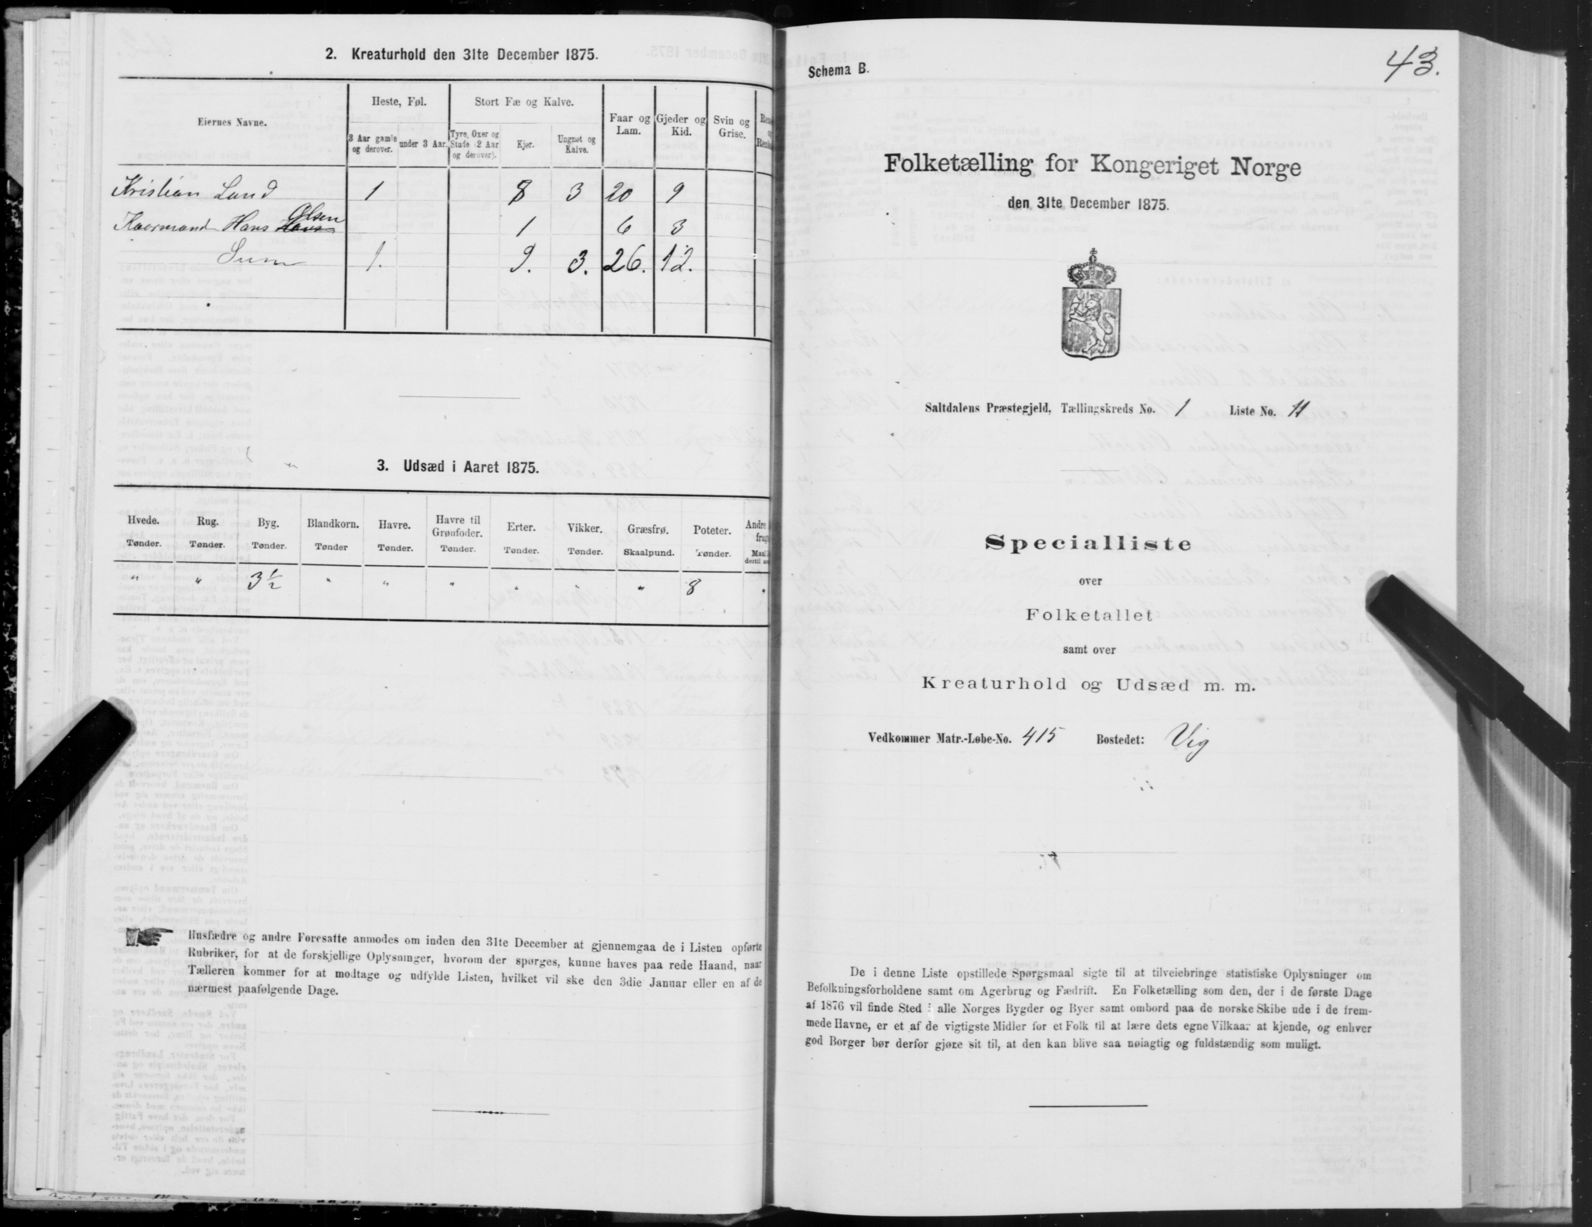 2. Kreaturhold den 31te December 1875.
Eiernes Navne.
Heste, Føl.
Stort Fæ og Kalve.
Faar og Lam.
Gjeder og Kid.
Svin og Grise.
3 Aar gamle og derover.
under 3 Aar.
Tyre, Oxer og Stude (2 Aar og derover).
Kjør.
Ungnøt og Kalve.
Kristian Land 1 8 3 20 9
Olsen
Kaarmand Hans 1 6 3
Sum 1. 9. 3. 26. 12.
3. Udsæd i Aaret 1875.
Hvede. Rug. Byg. Blandkorn. Havre. Havre til Grønfoder. Erter. Vikker. Græsfrø. Poteter. Andre
Tønder. Tønder. Tønder. Tønder Tønder. Tønder. Tønder. Tønder. Skaalpund. Tønder.
" " 3½ " " " " " " 8
Husfædre og andre Foresatte anmodes om inden den 31te December at gjennemgaa de i Listen opførte
Rubriker, for at de forskjellige Oplysninger, hvorom der spørges, kunne haves paa rede Haand, naar
Tælleren kommer for at modtage og udfylde Listen, hvilket vil ske den 3die Januar eller en af de
nærmest paafølgende Dage.
43.
Schema B.
Folketælling for Kongeriget Norge
den 31te December 1875.
Saltdalens Præstegjeld, Tællingskreds No. 1 Liste No. 11
Specialliste
over
Folketallet
samt over
Kreaturhold og Udsæd m. m.
Vedkommer Matr.-Løbe-No. 415 Bostedet: Vig
De i denne Liste opstillede Spørgsmaal sigte til at tilveiebringe statistiske Oplysninger om
Befolkningsforholdene samt om Agerbrug og Fædrift. En Folketælling som den, der i de første Dage
af 1876 vil finde Sted i alle Norges Bygder og Byer samt ombord paa de norske Skibe ude i de frem-
mede Havne, er et af de vigtigste Midler for et Folk til at lære dets egne Vilkaar at kjende, og enhver
god Borger bør derfor gjøre sit til, at den kan blive saa nøiagtig og fuldstændig som muligt.